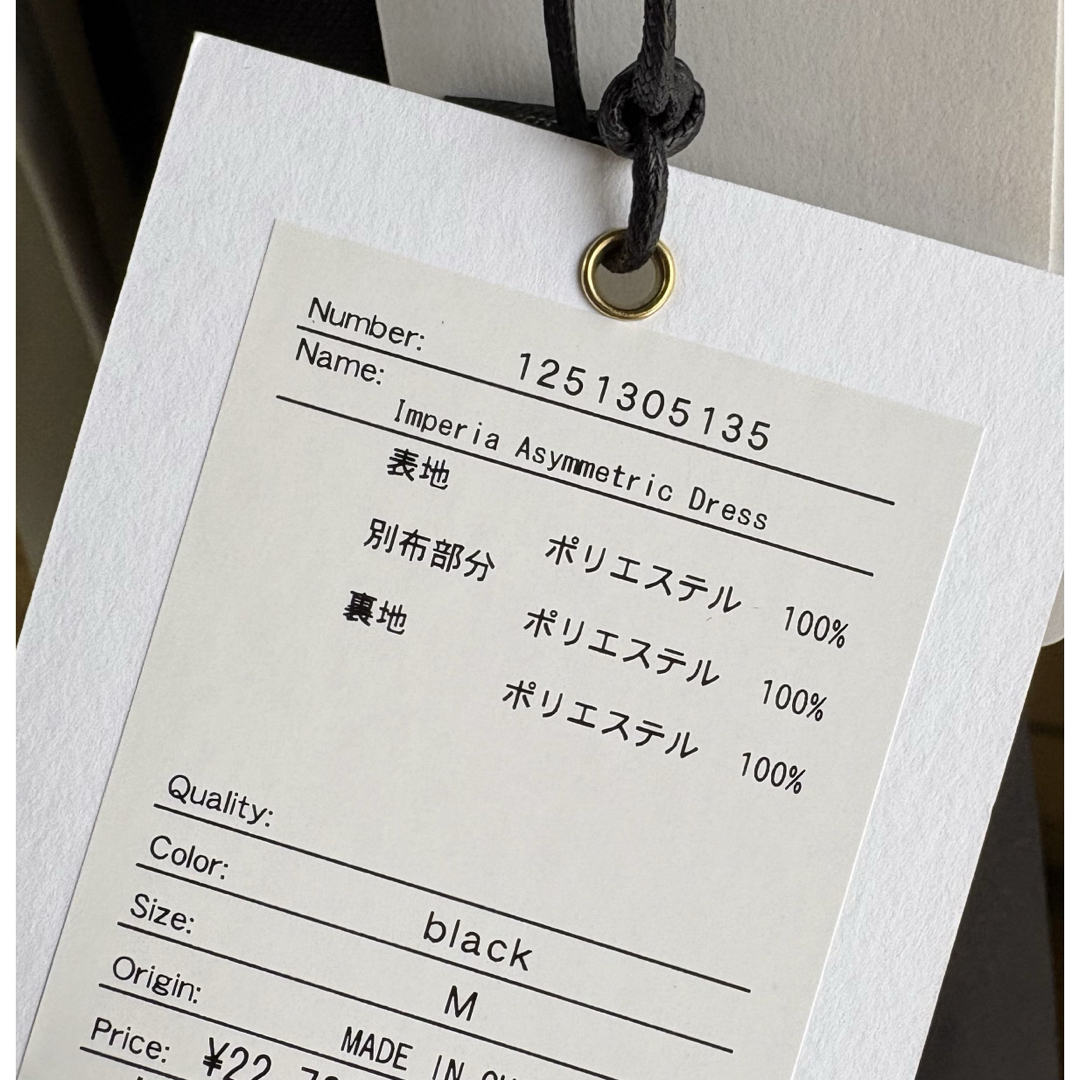 Number: 1251305135
Name: Imperia Asymmetric Dress
表地 ポリエステル 100%
別布部分 ポリエステル 100%
裏地 ポリエステル 100%
Quality:
Color: black
Size: M
Origin: MADE IN
Price: ¥22